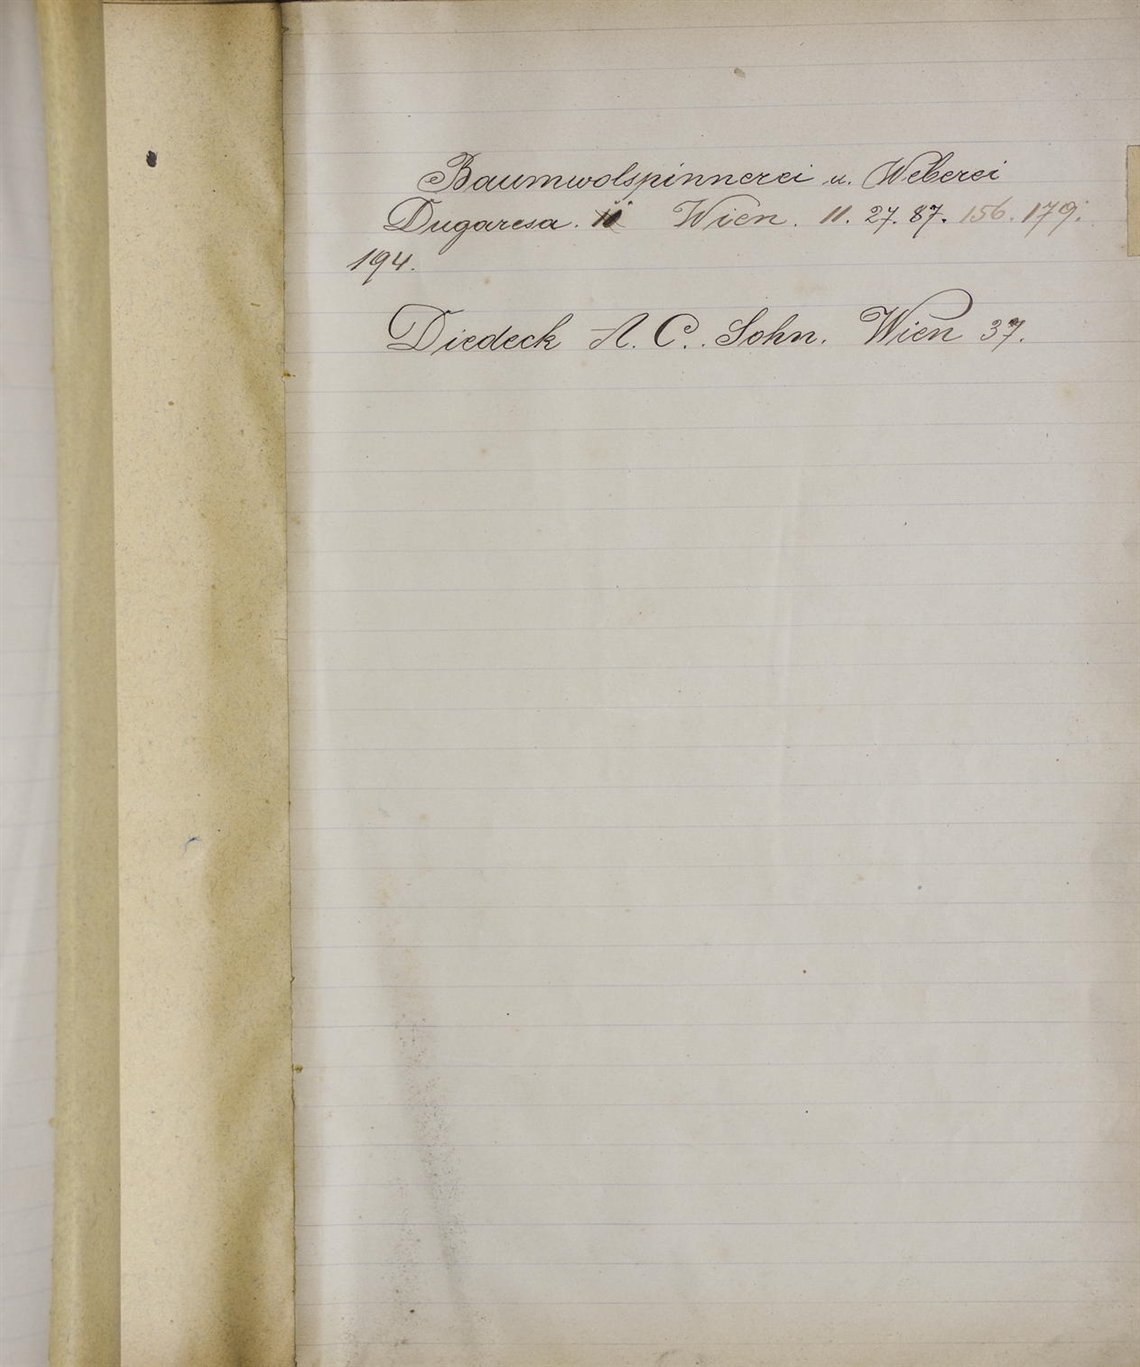 Baumwolspinnerei u. Weberei
Dugaresa. Wien. 11. 27. 87. 156. 179.
194.
Diedeck A. C. Sohn. Wien 37.